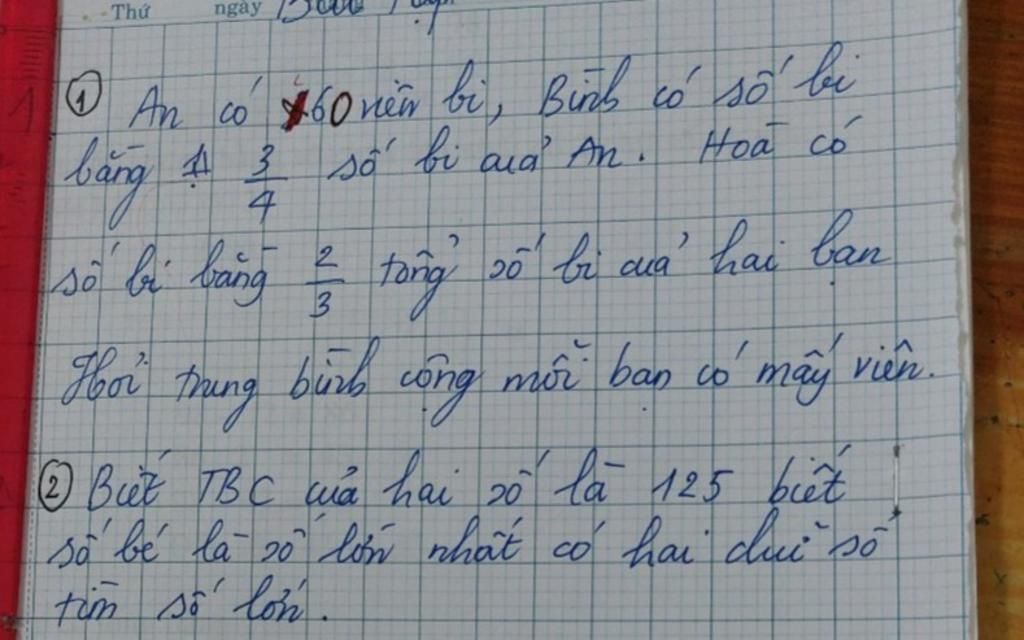 Thứ ngày
① An có 60 viên bi, Bình có số bi
bằng 3/4 số bi của An. Hoà có
số bi bằng 2/3 tổng số bi của hai bạn
Hỏi trung bình cộng mỗi bạn có mấy viên.
② Biết TBC của hai số là 125 biết
số bé là số lớn nhất có hai chữ số
tìm số lớn.